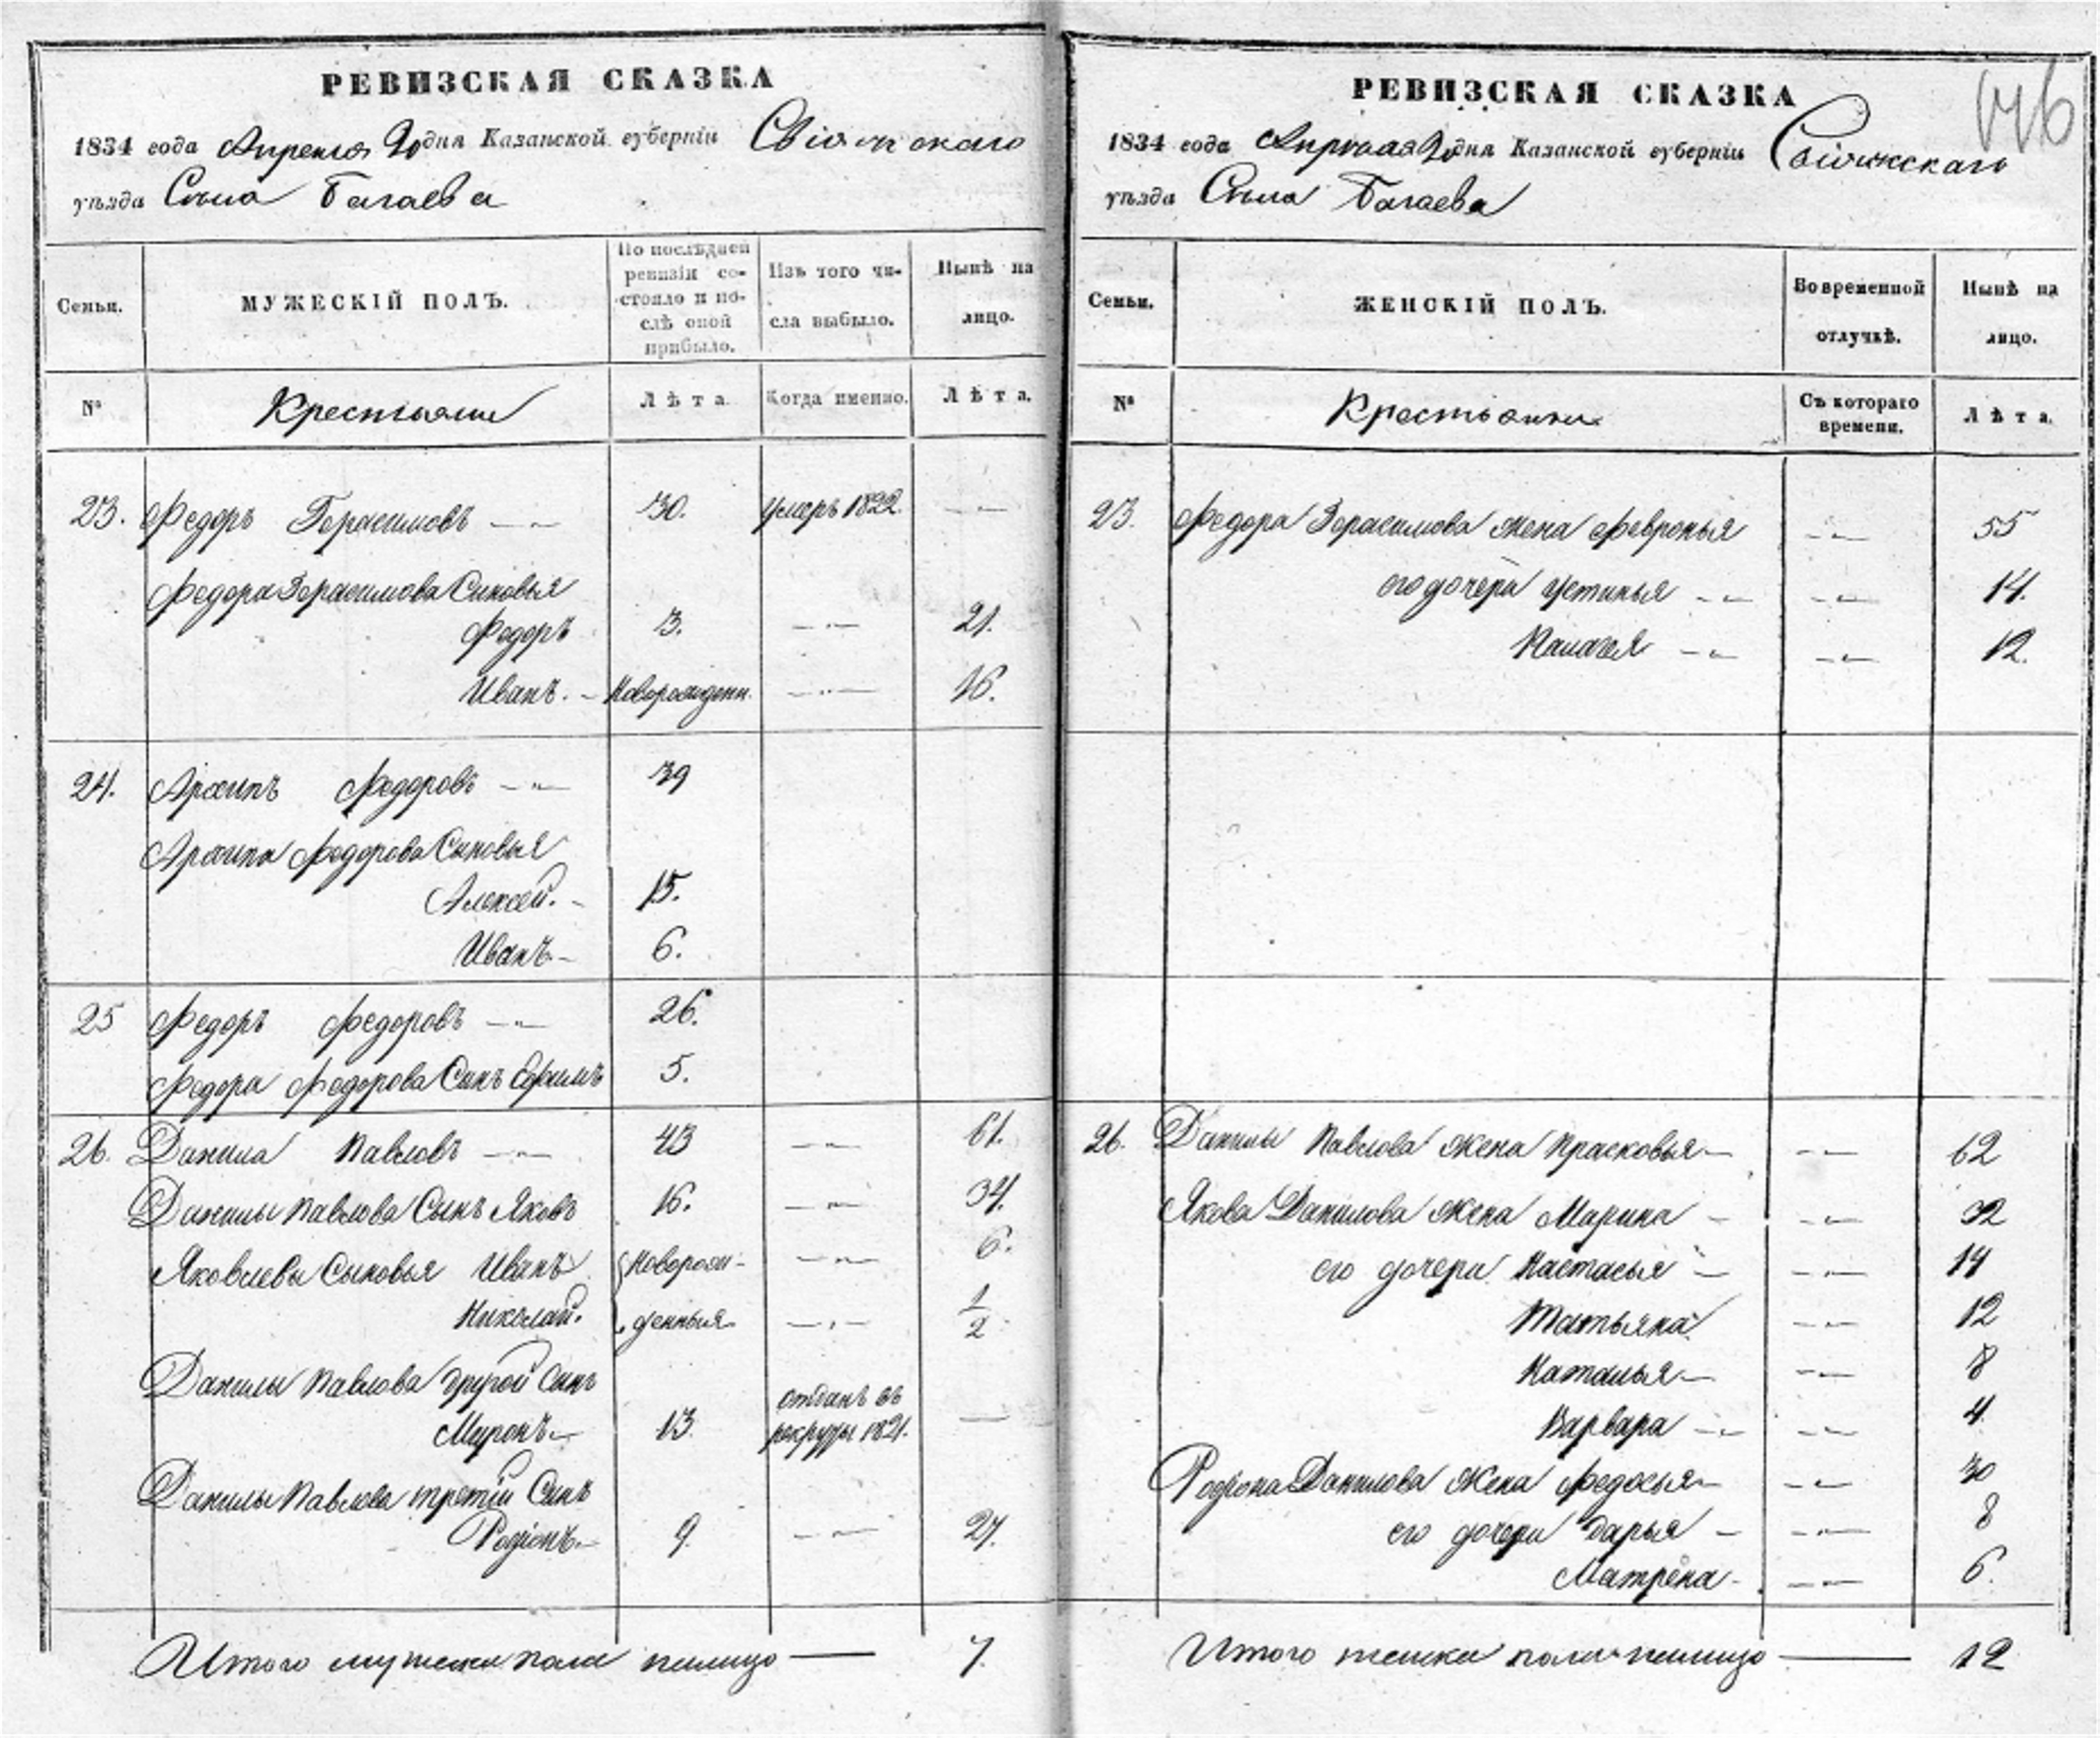 РЕВИЗСКАЯ СКАЗКА
1834 года Апреля 20 дня Казанской губерніи Свіяжскаго
уѣзда Села Багаева
Семьи.
МУЖЕСКІЙ ПОЛЪ.
По послѣдней
ревизіи со-
стояло и по-
слѣ оной
прибыло.
Изъ того чи-
сла выбыло.
Нынѣ на
лицо.
№
Крестьяне
Лѣта
Когда именно.
Лѣта.
23. Федоръ Герасимовъ 30. умеръ 1822.
Федора Герасимова Сыновья
Федоръ 3. 21.
Иванъ. Новорожденн. 16.
24. Архипъ Федоровъ 39
Архипа Федорова Сыновья
Алексей. 15.
Иванъ 6.
25 Федоръ Федоровъ 26.
Федора Федорова Сынъ Ефимъ 5.
26. Данила Павловъ 43 61.
Данилы Павлова Сынъ Яковъ 16. 34.
Яковлевы Сыновья Иванъ Новорож- 6.
Николай. денныя 1/2
Данилы Павлова другой Сынъ
Миронъ 13 отданъ въ рекруты 1821.
Данилы Павлова третій Сынъ
Родіонъ 9. 27.
Итого мужеска пола налицо 7.
146
РЕВИЗСКАЯ СКАЗКА
1834 года Апреля 20 дня Казанской губерніи Свіяжскаго
уѣзда Села Багаева
Семьи.
ЖЕНСКІЙ ПОЛЪ.
Во временной
отлучкѣ.
Нынѣ на
лицо.
№
Крестьянки
Съ котораго
времени.
Лѣта.
23. Федора Герасимова жена Февронья 55
его дочери Устинья 14.
Палагея 12.
26. Данилы Павлова жена Прасковья 62
Якова Данилова жена Марина 32
его дочери Настасья 14
Татьяна 12
Наталья 8
Варвара 4.
Родіона Данилова жена Федосья 30
его дочери Дарья 8
Матрена 6.
Итого женска пола налицо 12